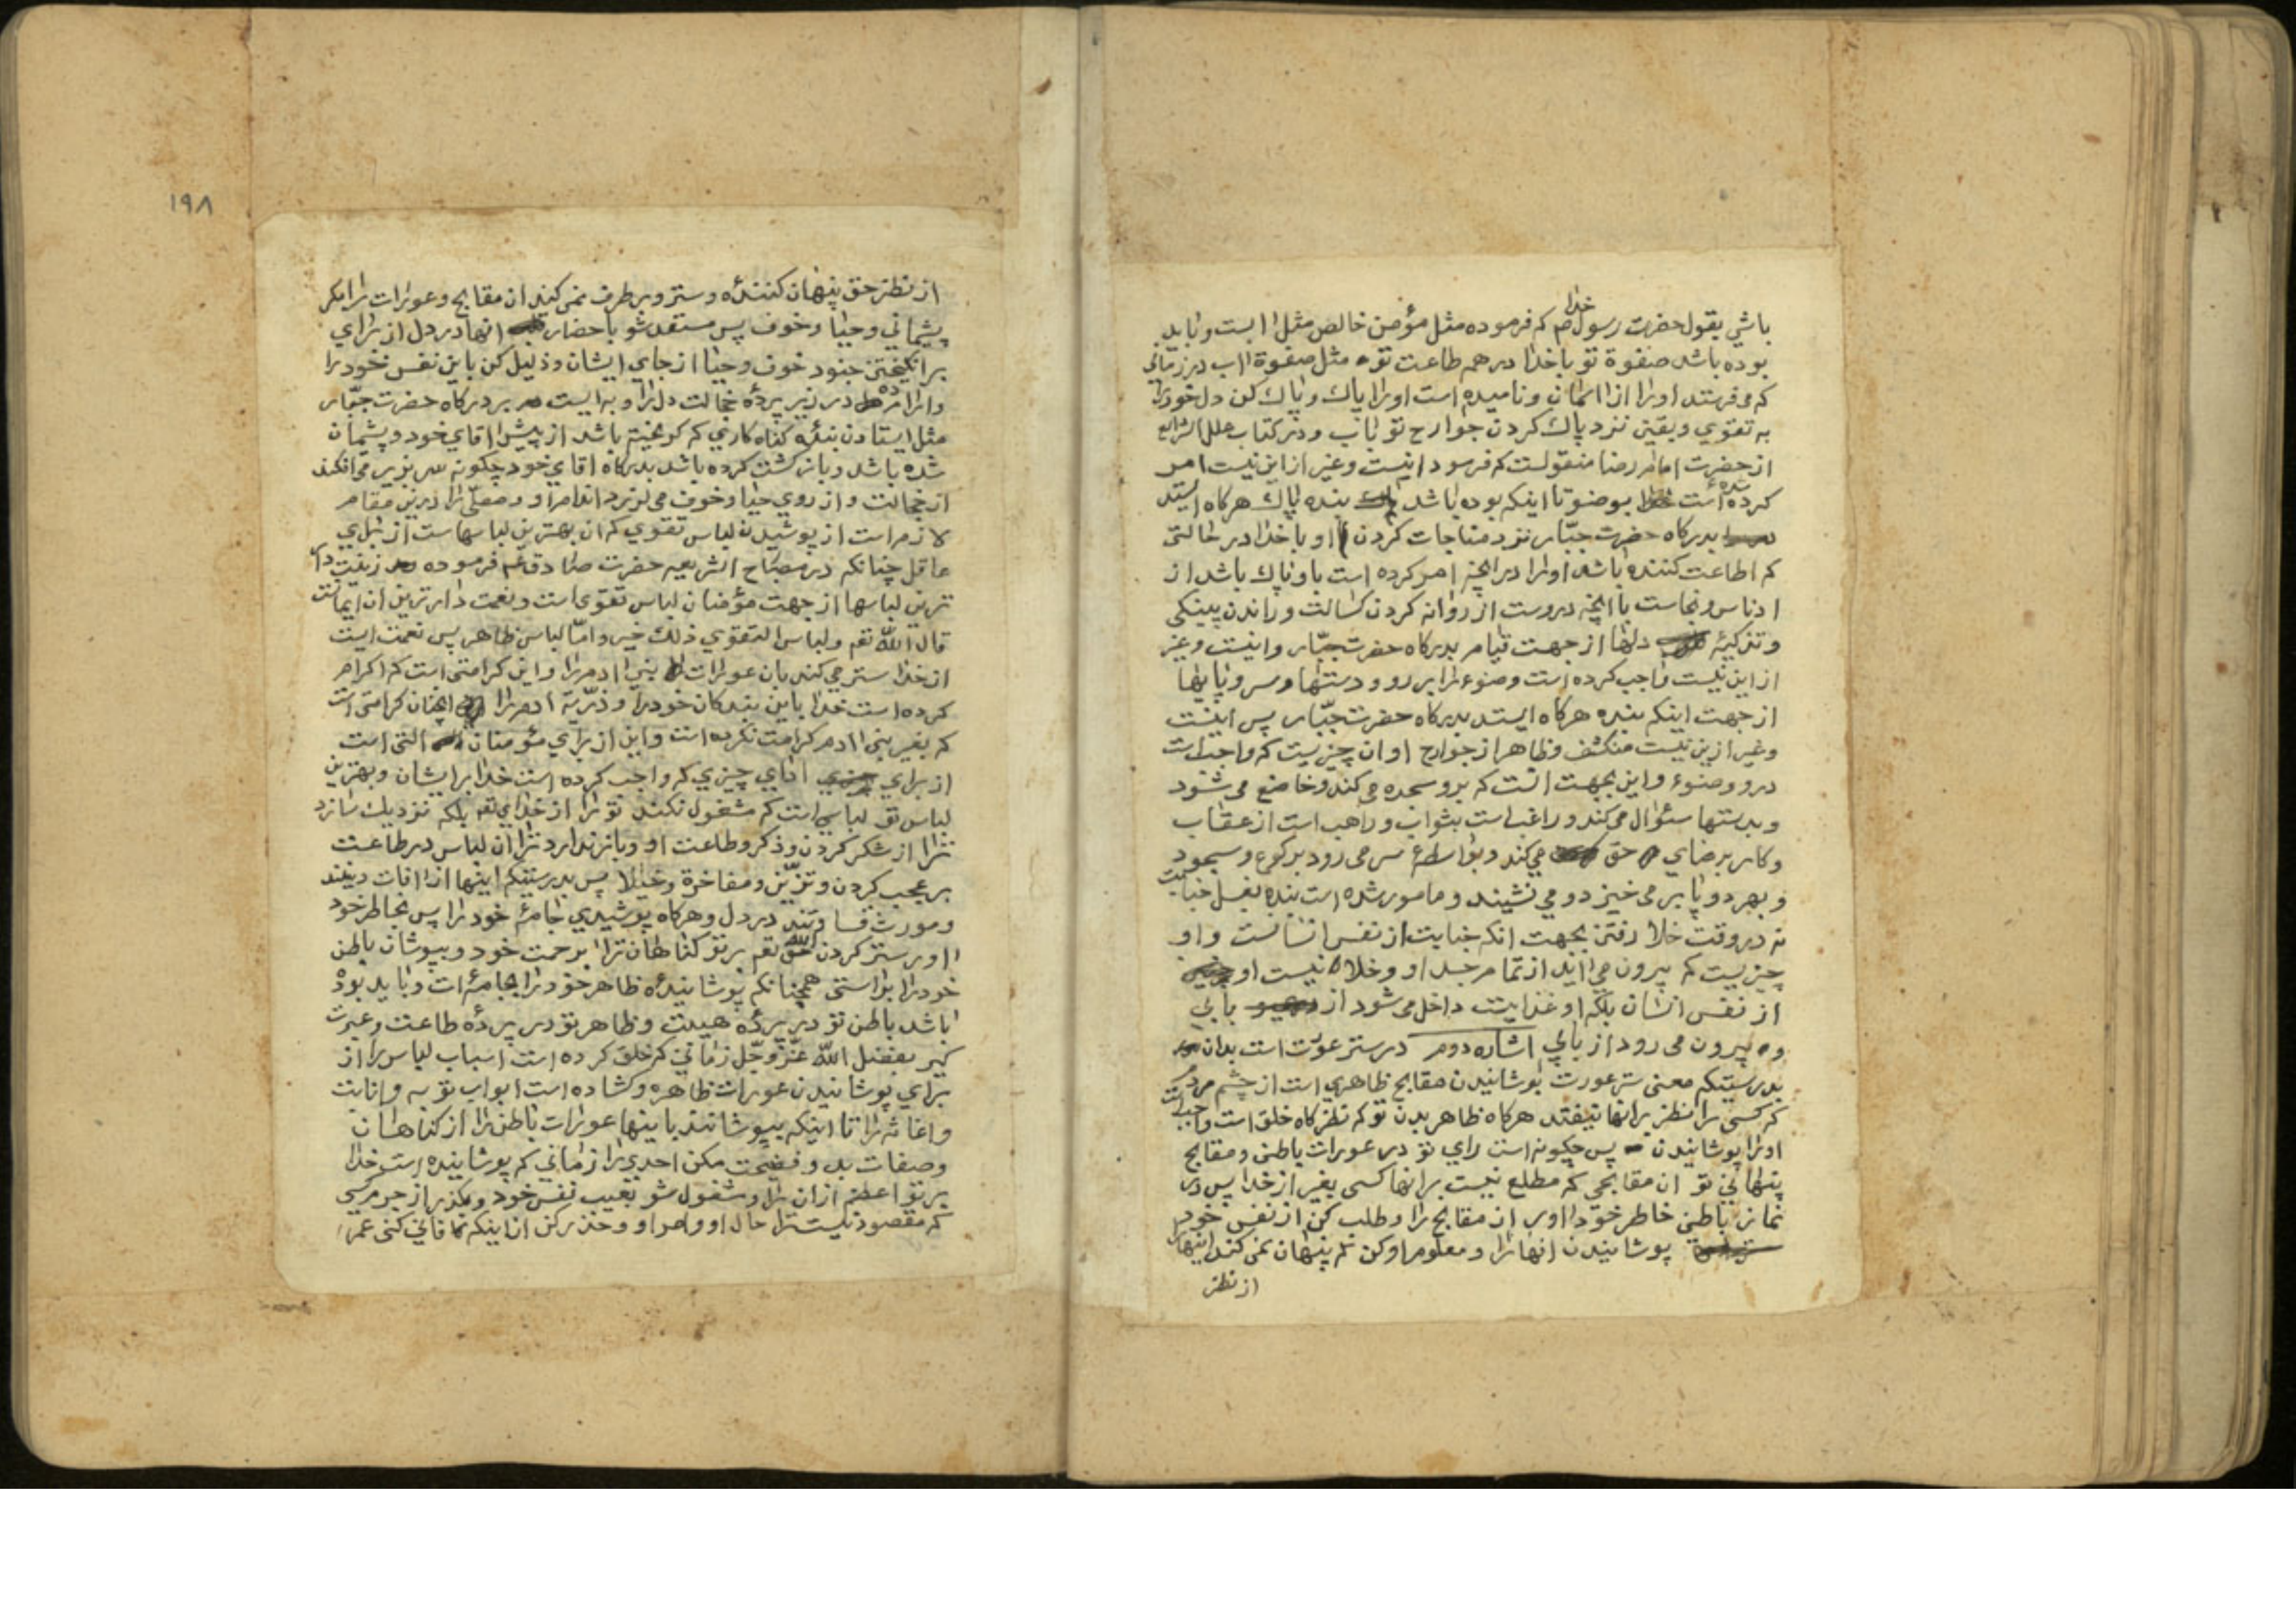 باشي بقول حضرت رسول خدا ص كه فرموده مثل مؤمن خالص مثل ابست و بايد
بوده باشد صفوة تو با خدا در همه طاعت تو مثل صفوة اب در زماني
كه مى فرستد اورا از اسمان و ناميده است اورا پاك و پاك كن دل خودرا
به تقوي و يقين نزد پاك كردن جوارح تو باب و در كتاب علل الشرايع
از حضرت امام رضا منقولست كه فرمود اينست و غير از اين نيست امر
كرده شده است بوضو تا اينكه بوده باشد بنده پاك هركاه ايستد
بدركاه حضرت جبّار نزد مناجات كردن او با خدا در حالتى
كه اطاعت كننده باشد اورا در انچه امر كرده است باو پاك باشد از
ادناس و نجاست با انچه دروست از روانه كردن كسالت و راندن پينكى
و تزكيهٔ دلها از جهت قيام بدركاه حضرت جبّار و اينست و غير
از اين نيست واجب كرده است وضوء را بر رو و دستها و سر و پايها
از جهت اينكه بنده هركاه ايستد بدركاه حضرت جبّار پس اينست
و غير ازين نيست منكشف و ظاهر از جوارح او ان چيزيست كه واجب است
درو وضوء و اين بجهت انست كه برو سجده مى كند و خاضع مى شود
و بدستها سئوال مى كند و راغب است بثواب و راهب است از عقاب
و كار برضاي حق مي كند و بواسطهٔ سر مى رود بركوع و سجود
و بهر دو پا بر مى خيزد و مي نشيند و مامور شده است بنده بغسل جنابت
نه در وقت خلا رفتن بجهت انكه جنابت از نفس انسانست و او
چيزيست كه بيرون مي ايد از تمام جسد او و خلا نيست او
از نفس انسان بلكه او غذايست داخل مى شود از بابي
و بيرون مى رود از بابي اشاره دوم در ستر عورت است بدان
بدرستيكه معنى ستر عورت پوشانيدن مقابح ظاهري است از چشم مردم
كه كسى را نظر برانها نيفتد هركاه ظاهر بدن تو كه نظركاه خلق است واجب است
اورا پوشانيدن پس چكونه است راي تو در عورات باطن و مقابح
پنهاني تو ان مقابحي كه مطلع نيست برانها كسى بغير از خدا پس در
نماز باطن خاطر خود اور ان مقابح را و طلب كن از نفس خود
پوشانيدن انها را و معلوم او كن كه پنهان نمى كند اينها را
از نظر
١٩٨
از نظر حق پنهان كننده و ستر و برطرف نمى كند ان مقابح و عورات را مكر
پشيماني و حيا و خوف پس مستعد شو باحضار انها در دل از براي
برانكيختن جنود خوف و حيا از جاي ايشان و ذليل كن باين نفس خود را
در زير پردهٔ خجالت دل را و به ايست بر دركاه حضرت جبّار
مثل ايستادن بندهٔ كناه كاري كه كريخته باشد از پيش اقاي خود و پشيمان
شده باشد و باز كشت كرده باشد بدركاه اقاي خود چكونه سر بزير مى افكند
از خجالت و از روي حيا و خوف مى لرزد اندام او و مصلّى را درين مقام
لازم است از پوشيدن لباس تقوي كه ان بهترين لباسهاست از براي
عاقل چنانكه در مصباح الشريعه حضرت صادق ع فرموده زينت دار
ترين لباسها از جهت مؤمنان لباس تقوى است و نعمت دارترين ان ايمانست
قال اللّه تع و لباس التقوي ذلك خير و امّا لباس ظاهر پس نعمت ايست
از خدا ستر مي كند بان عورات بني ادم را و اين كرامتى است كه اكرام
كرده است خدا باين بندكان خود را و ذرّيهٔ ادم را انچنان كرامتى است
كه بغير بني ادم كرامت نكرده است و اين از براي مؤمنان التى است
از براي اداي چيزي كه واجب كرده است خدا برايشان و بهترين
لباس تو لباسي است كه مشغول نكند تو را از خداي تع بلكه نزديك سازد
ترا از شكر كردن و ذكر و طاعت او و باز ندارد ترا ان لباس در طاعت
بر عجب كردن و تزيّن و مفاخرة و خيلا پس بدرستيكه اينها از افات دينند
و مورث قساوتند در دل و هركاه پوشيدي جامهٔ خود را پس بخاطر خود
اور ستر كردن اللّه تع بر تو كناهان ترا برحمت خود و بپوشان باطن
خودرا براستى همچنانكه پوشانيدهٔ ظاهر خود را بجامه ات و بايد بوده
باشد باطن تو در پردهٔ هيبت و ظاهر تو در پردهٔ طاعت و عبرت
كير بفضل اللّه عزّ و جّل زماني كه خلق كرده است اسباب لباس را از
براي پوشانيدن عورات ظاهره و كشاده است ابواب توبه و انابت
و اغاثه را تا اينكه بپوشانند باينها عورات باطن را از كناهان
و صفات بد و فضيحت مكن احدي را زماني كه پوشانيده است خدا
بر تو اعظم ازان را و مشغول شو بعيب نفس خود و بكذر از جرم كسي
كه مقصود نيست ترا حال او و امر او و حذر كن از اينكه فاني كنى عمر